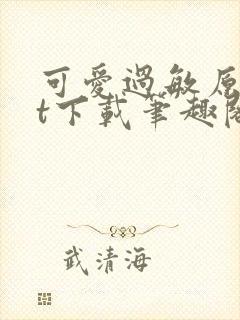 可愛過敏原
t下載筆趣閣
武清海